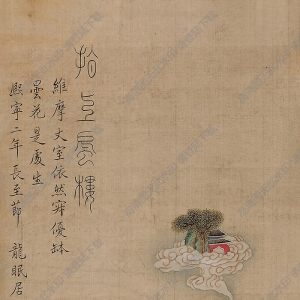 指上蜃樓
維摩丈室依然窄優鉢
曇花是處生
熙寧二年長至節 龍眠居